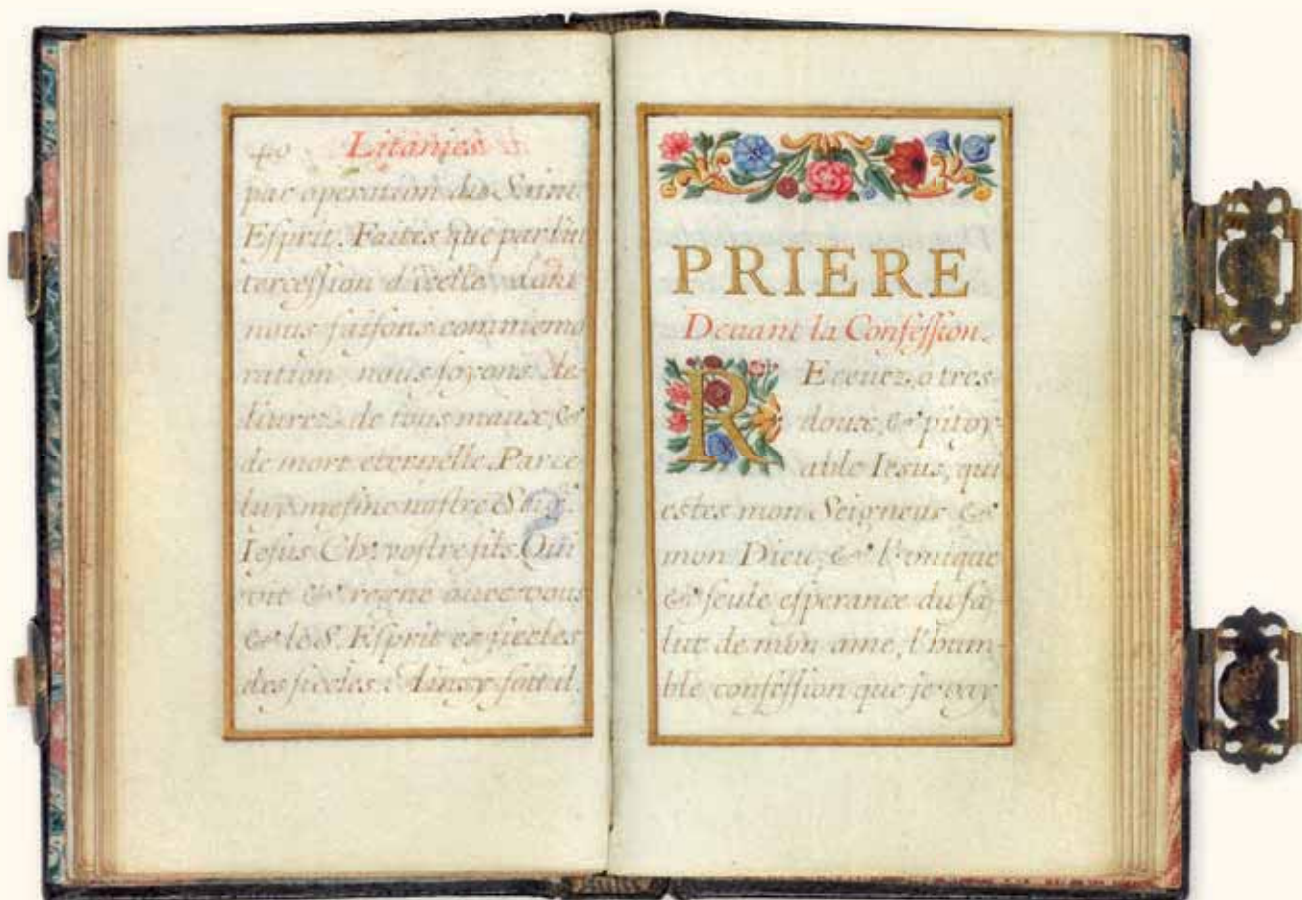 40 Litanies
par operation du Saint
Eſprit. Faites que par l'in
terceſſion d'icelle dont
nous faiſons commemo
ration nous ſoyons de
liurez de tous maux, &
de mort eternelle. Par ce
luy meſme noſtre Seig.
Ieſus Ch. voſtre fils. Qui
vit & regne auec vous
& le S. Eſprit es ſiecles
des ſiecles. Ainſy ſoit il.
PRIERE
Deuant la Confeſſion.
REceuez, o tres
doux, & pitoy
able Iesus, qui
estes mon Seigneur &
mon Dieu, & l'vnique
& ſeule eſperance du ſa
lut de mon ame, l'hum-
ble confeſſion que ie vay